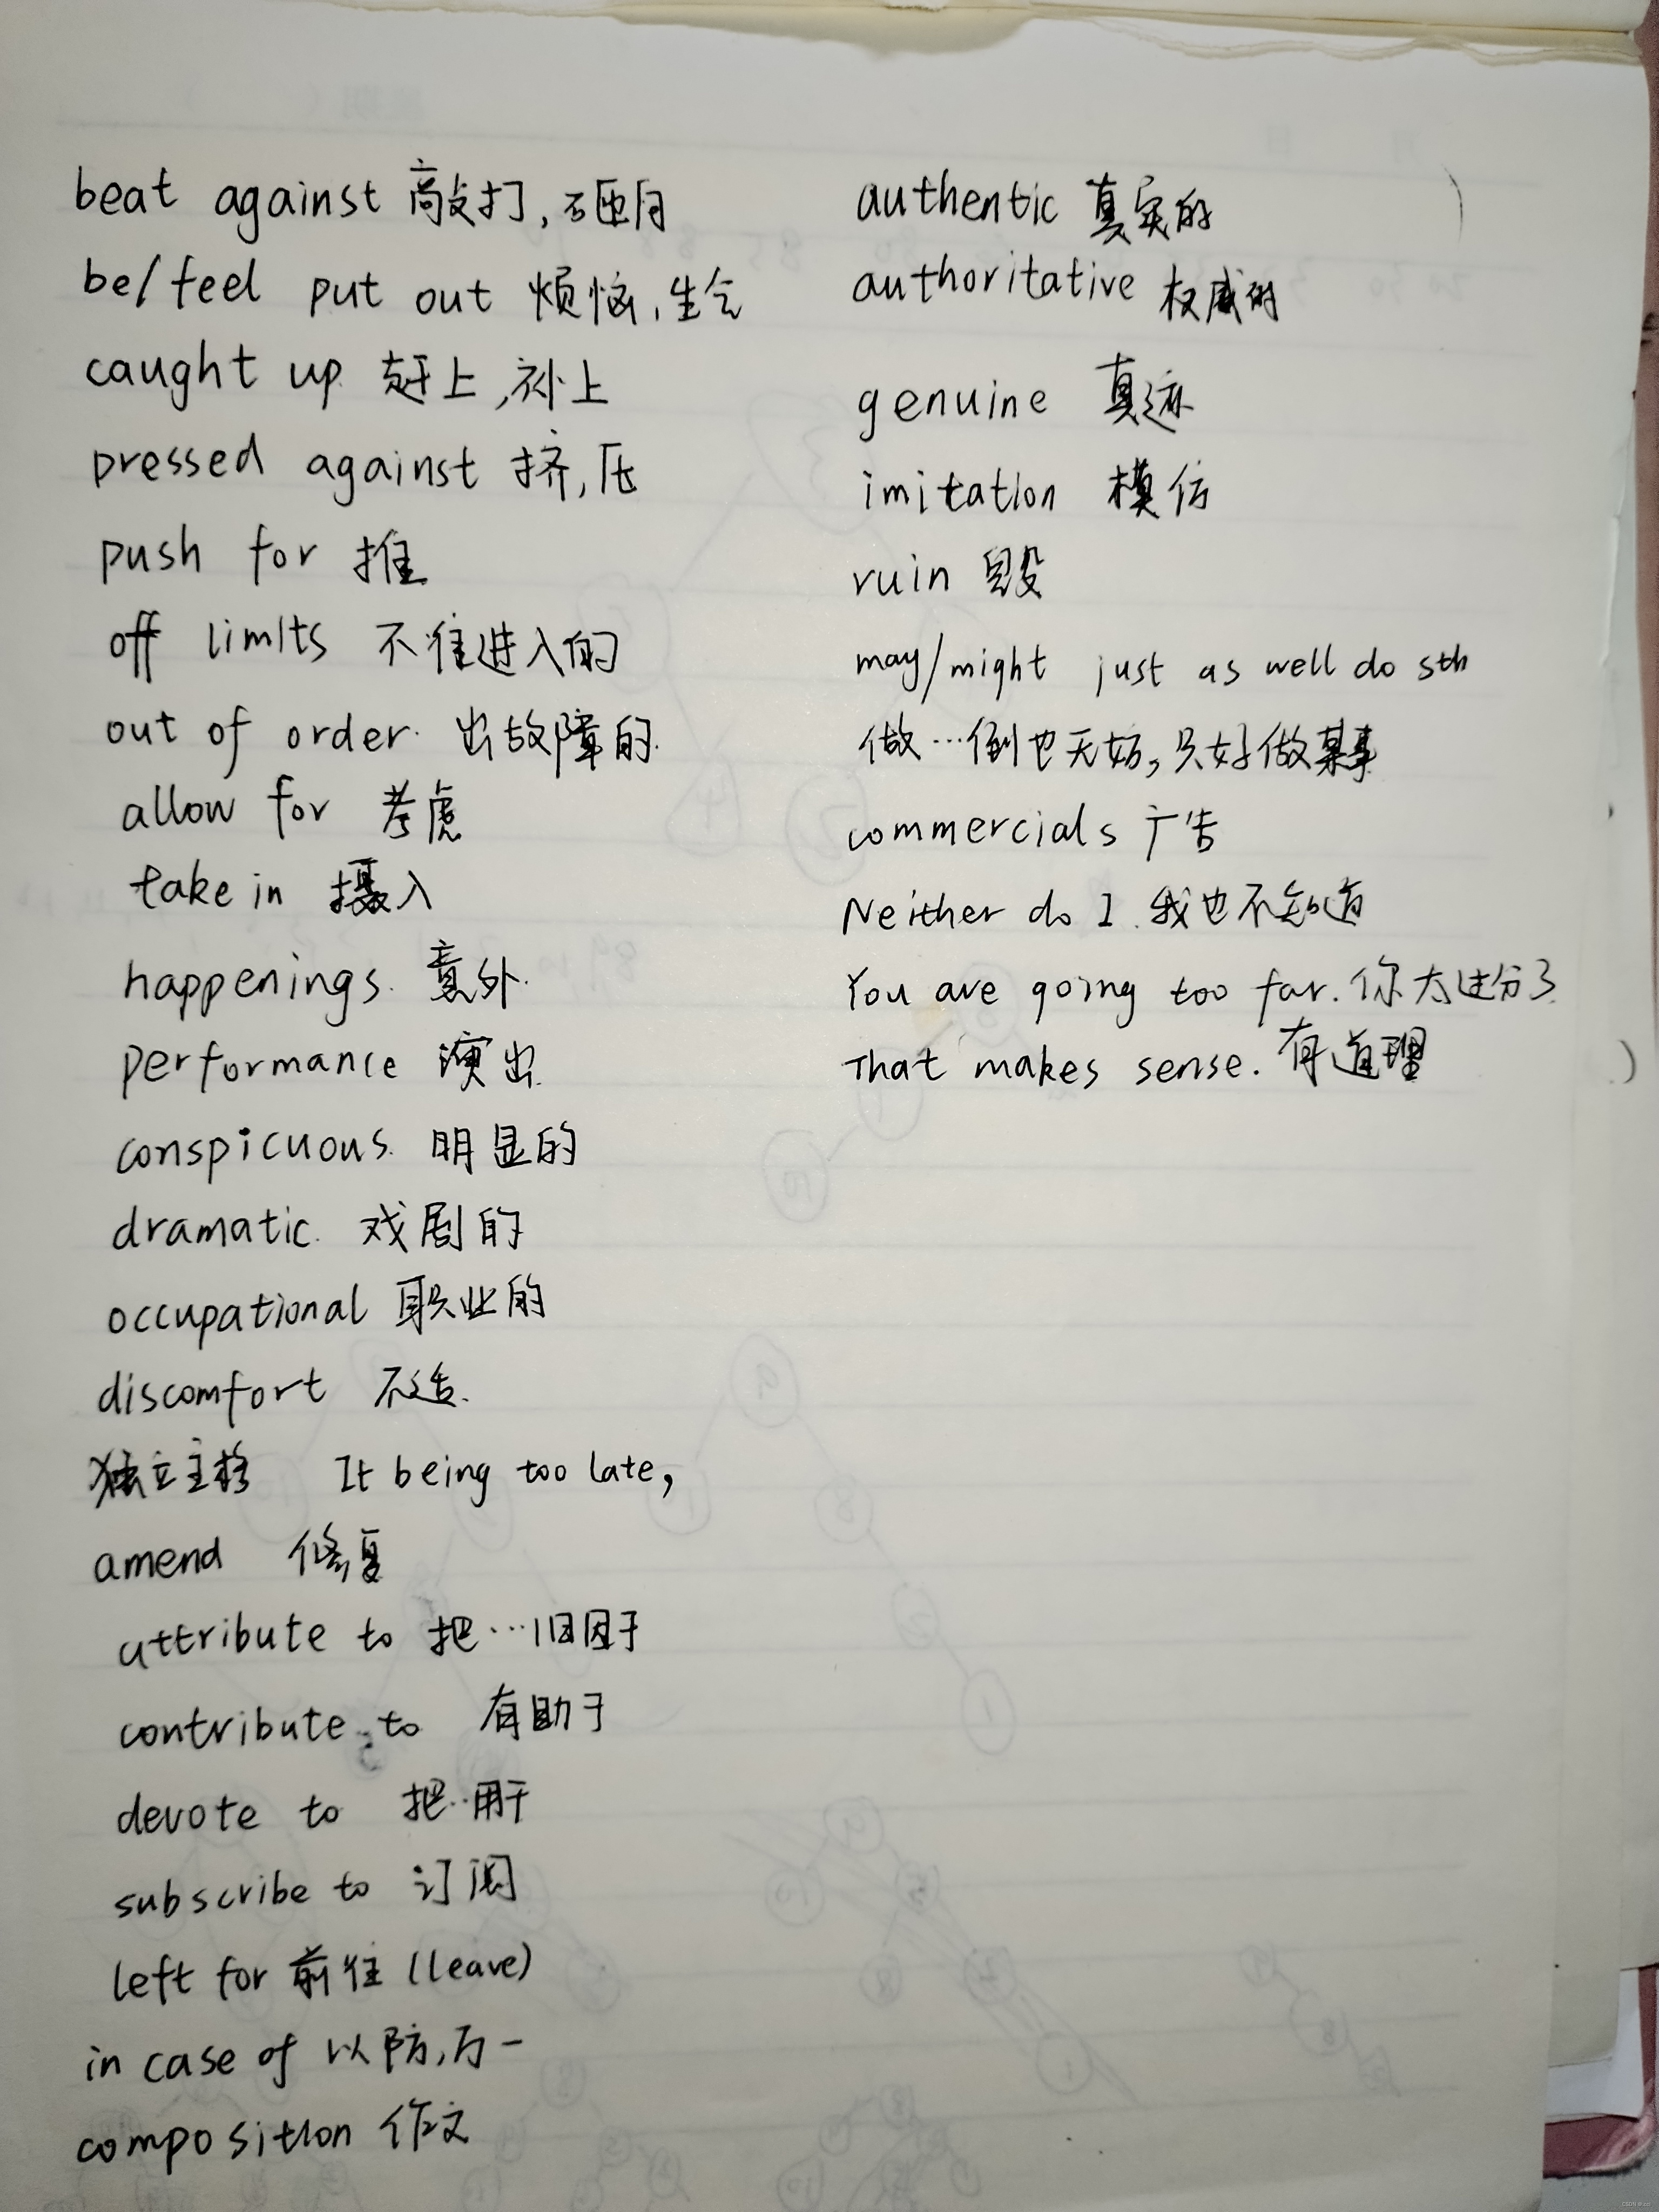 beat against 敲打,砸
be/feel put out 烦恼,生气
caught up 赶上,补上
pressed against 挤,压
push for 推
off limits 不准进入的
out of order. 出故障的.
allow for 考虑
take in 摄入
happenings. 意外.
performance 演出
conspicuous. 明显的
dramatic. 戏剧的
occupational 职业的
discomfort 不适.
独立主格 It being too late,
amend 修复
attribute to 把…归因于
contribute to 有助于
devote to 把…用于
subscribe to 订阅
left for 前往 (leave)
in case of 以防,万一
composition 作文
authentic 真实的
authoritative 权威的
genuine 真迹
imitation 模仿
ruin 毁
may/might just as well do sth
做…倒也无妨,只好做某事
commercials 广告
Neither do I. 我也不知道
You are going too far. 你太过分了.
That makes sense. 有道理